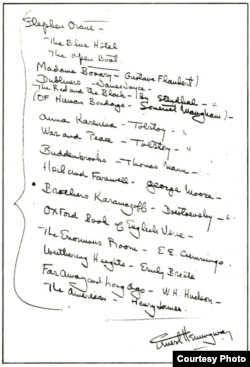 Stephen Crane -
The Blue Hotel
The Open Boat
Madame Bovary - Gustave Flaubert)
Dubliners - James Joyce
The Red and the Black - (By Stendhal -
(Of Human Bondage - Somerset Maugham) -
Anna Karenina - Tolstoy - "
War and Peace - Tolstoy - "
Buddenbrooks - Thomas Mann -
Hail and Farewell - George Moore -
Brothers Karamazoff - Dostoevsky -
Oxford Book of English Verse -
The Enormous Room - E.E. Cummings.
Wuthering Heights - Emily Brontë
Far Away and Long Ago - W.H. Hudson -
The American - Henry James.
Ernest Hemingway
Courtesy Photo